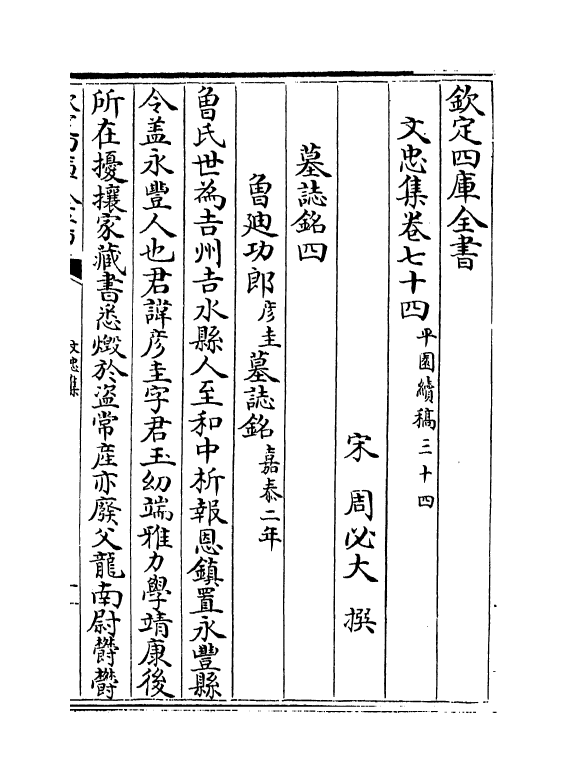 欽定四庫全書
文忠集卷七十四 平園續稿三十四
宋 周必大 撰
墓誌銘四
曾迪功郎彦圭墓誌銘 嘉泰二年
曾氏世為吉州吉水縣人至和中析報恩鎮置永豐縣
令盖永豐人也君諱彦圭字君玉幼端雅力學靖康後
所在擾攘家藏書悉燬於盗常産亦廢父龍南尉欝欝
文忠集
一